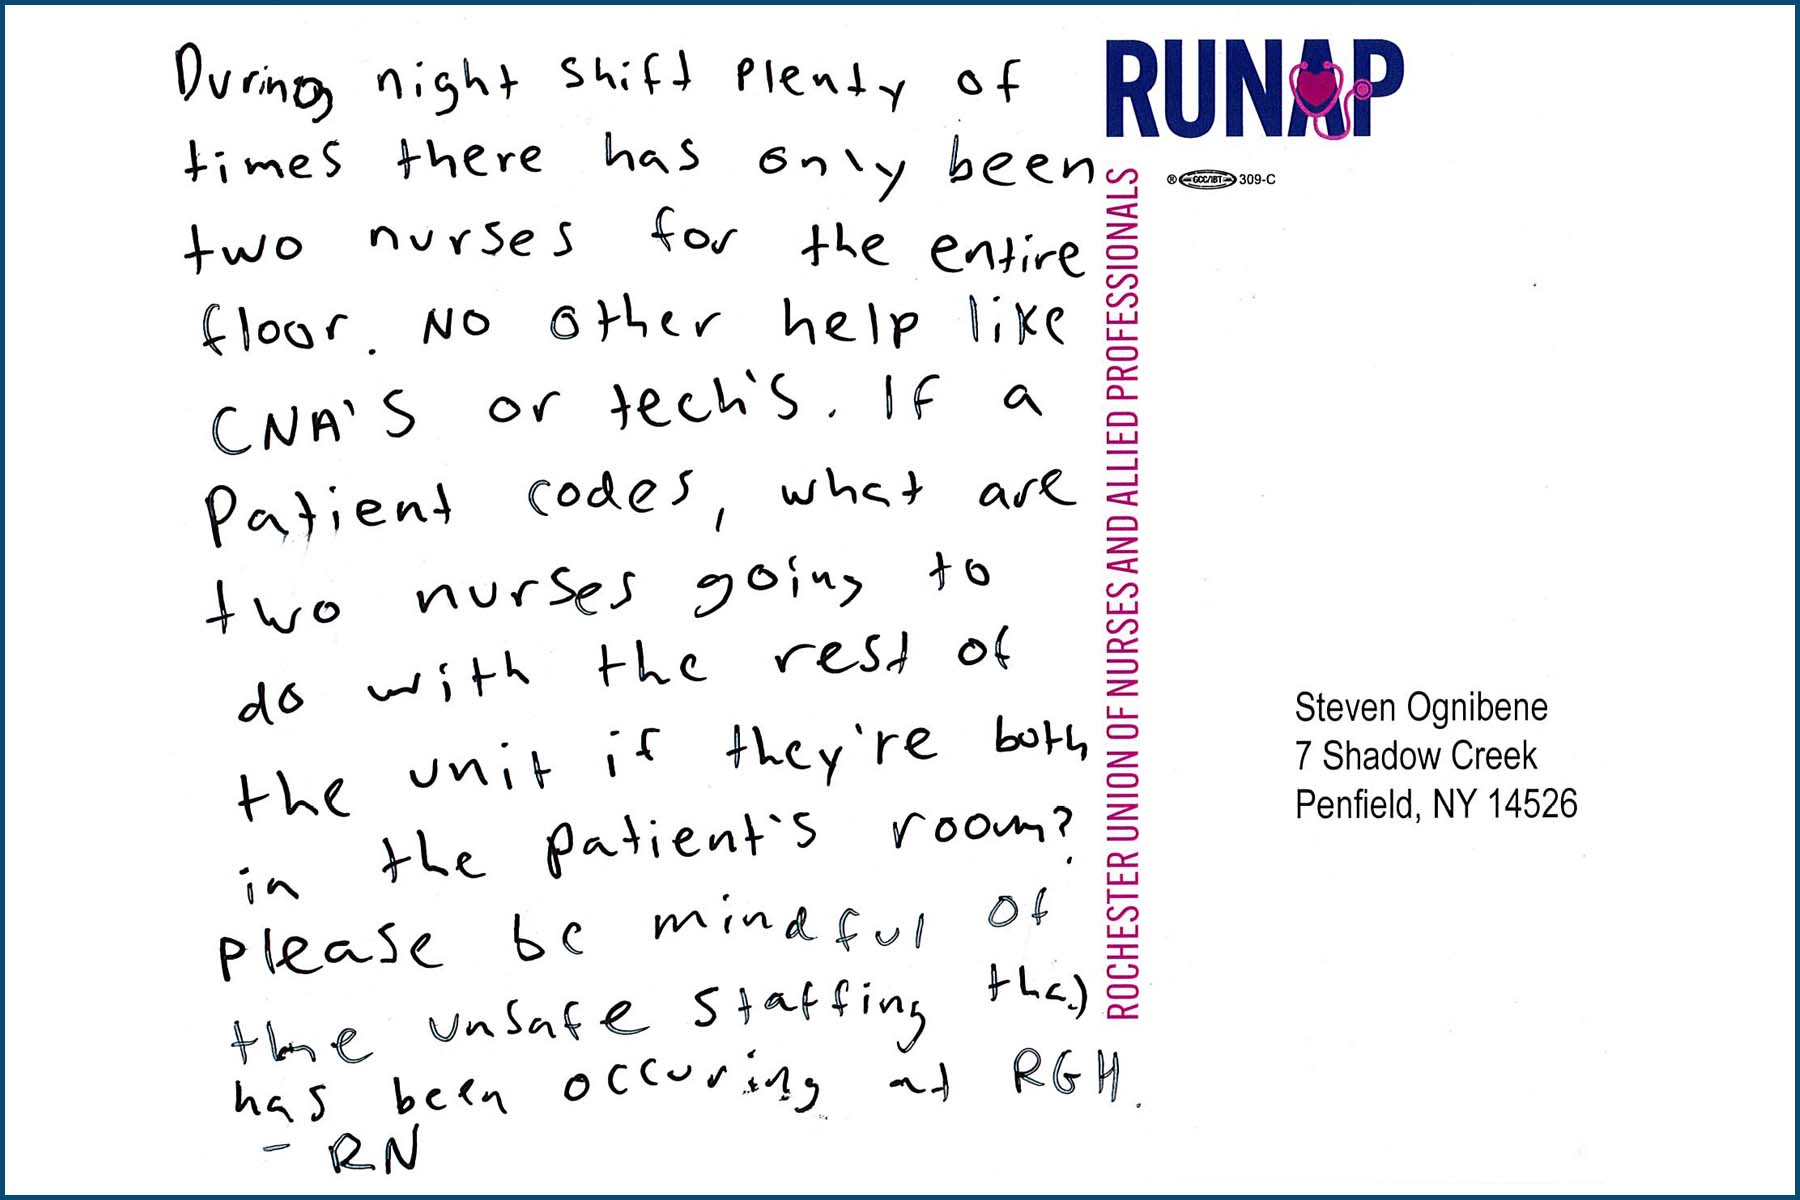 During night shift plenty of
times there has only been
two nurses for the entire
floor. No other help like
CNA's or tech's. If a
Patient codes, what are
two nurses going to
do with the rest of
the unit if they're both
in the patient's room?
please be mindful of
the unsafe staffing that
has been occuring at RGH.
- RN
RUNAP
® GCC/IBT 309-C
ROCHESTER UNION OF NURSES AND ALLIED PROFESSIONALS
Steven Ognibene
7 Shadow Creek
Penfield, NY 14526